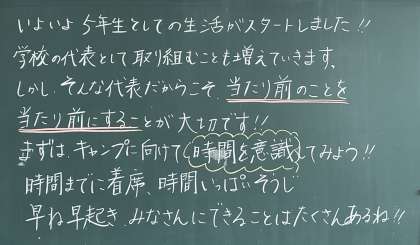 いよいよ5年生としての生活がスタートしました!!
学校の代表として取り組むことも増えていきます。
しかし、そんな代表だからこそ、当たり前のことを
当たり前にすることが大切です!!
まずは、キャンプに向けて、時間を意識してみよう!!
時間までに着席、時間いっぱいそうじ
早ね早起き、みなさんにできることはたくさんあるね!!